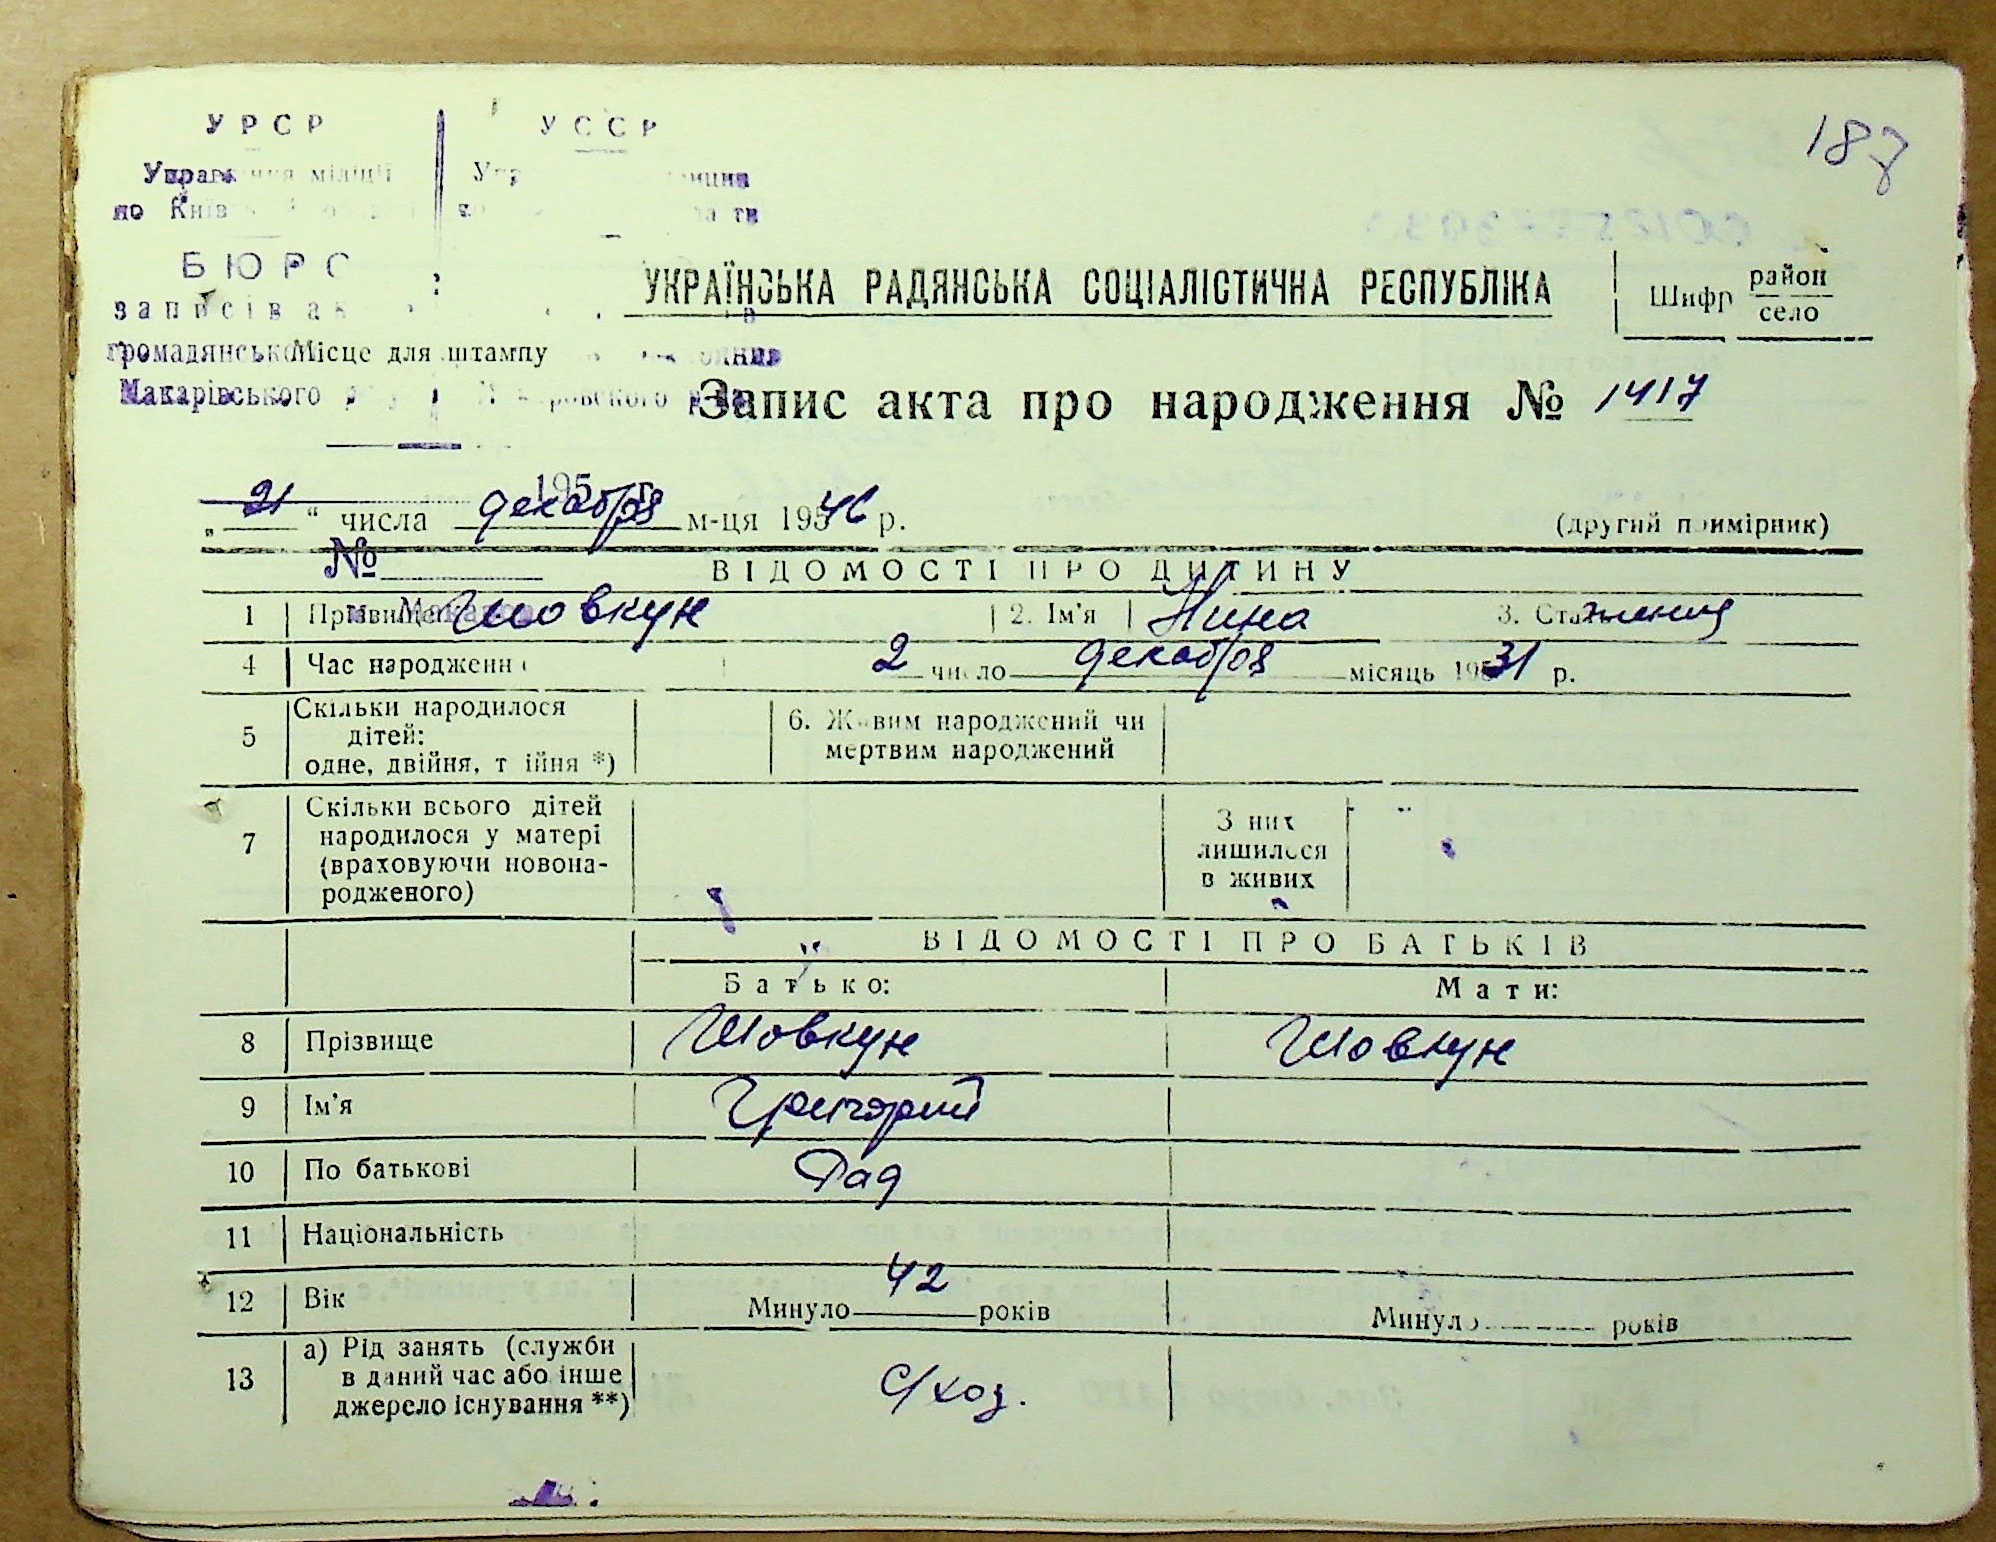 187
УРСР УССР
Управління міліції
по Київ
БЮРО
УКРАЇНСЬКА РАДЯНСЬКА СОЦІАЛІСТИЧНА РЕСПУБЛІКА
Шифр район
село
записів ак
громадянсько Місце для штампу
Макарівського
Запис акта про народження № 1417
195 г.
„21“ числа декабря м-ця 1946 р.
(другий примірник)
№
ВІДОМОСТІ ПРО ДИТИНУ
1 Прізвище Шовкун 2. Ім'я Нина 3. Стать
4 Час народження 2 число декабря місяць 1931 р.
5 Скільки народилося
дітей:
одне, двійня, трійня *)
6. Живим народжений чи
мертвим народжений
7 Скільки всього дітей
народилося у матері
(враховуючи новона-
родженого)
З них
лишилося
в живих
ВІДОМОСТІ ПРО БАТЬКІВ
Батько: Мати:
8 Прізвище Шовкун Шовкун
9 Ім'я Григорий
10 По батькові
11 Національність
12 Вік Минуло 42 років Минуло років
13 а) Рід занять (служби
в даний час або інше
джерело існування **)
С/хоз.